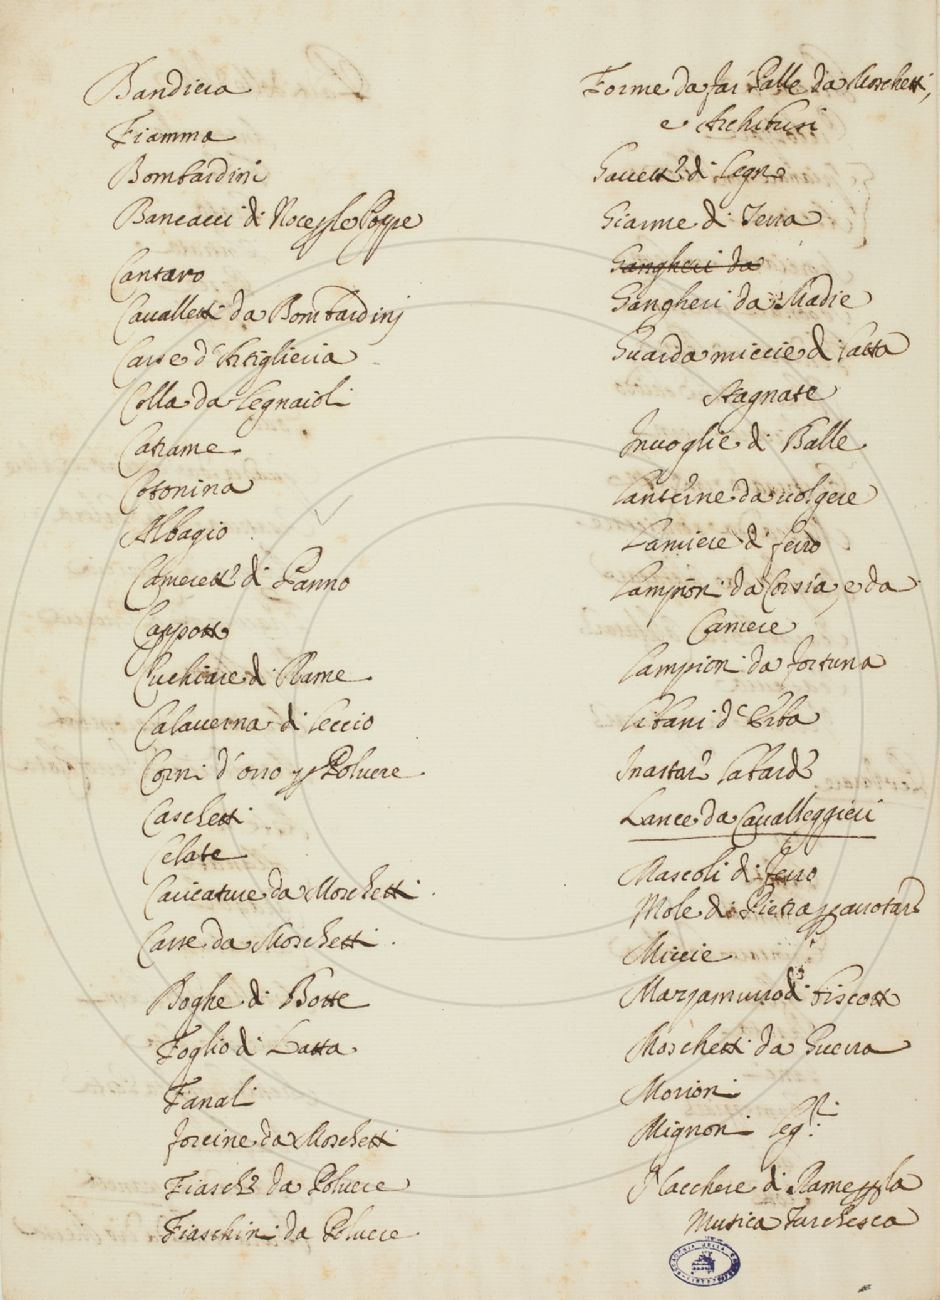 Bandiera
Fiamma
Bombardini
Bancacci di Noce p le Poppe
Cantaro
Cavalletti da Bombardinj
Casse d'Artiglieria
Colla da Legnaioli
Catrame
Cotonina
Albagio
Camerett.e di Panno
Cappotti
Cuchiare di Rame
Calaverna di Leccio
Corni d'osso p Polvere
Caschetti
Celate
Caricature da Moschetti
Casse da Moschetti
Doghe di Botte
Foglio di Latta
Fanali
forcine da Moschetti
Fiasche da Polvere
Fiaschini da Polvere
Forme da far Palle da Moschetti,
e Archibusi
Gavette di Legno
Giarme di Terra
Gangheri da
Gangheri da Madie
Guarda miccie di latta
stagnate
Invoglie di Balle
Lanterne da volgere
Lamiere di ferro
Lampioni da Corsia, e da
Camere
Lampioni da fortuna
Libani d'Erba
Lance da Cavalleggieri
Mascoli di ferro
Mole di Pietra p arrotare
Miccie
Mazzamurro di Biscotto
Moschetti da Guerra
Morioni
Mignoni
Nacchere di Rame p la
Musica Turchesca